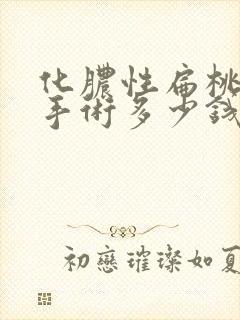 化膿性扁桃
手術多少錢
初戀璀璨如夏